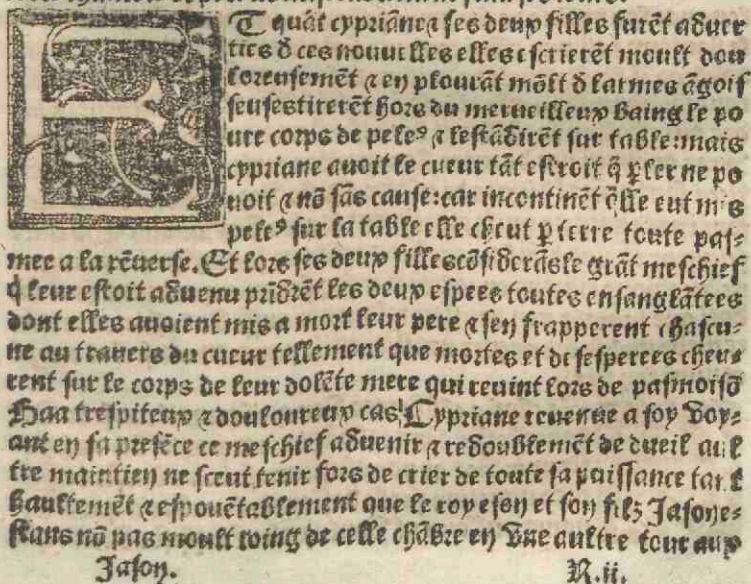 ET quāt cypriane ⁊ ses deux filles furēt aduer
ties d̄ ces nouuelles elles escrierēt moult dou
loreusemēt ⁊ en plourāt mōlt d̄ larmes āgois
seusestirerēt hors du merueilleux baing le po
ure corps de pele⁹ ⁊ lestādirēt sur table: mais
cypriane auoit le cueur tāt estroit q̄ ꝑler ne po
uoit ⁊ nō sās cause: car incontinēt q̄lle eut mis
pele⁹ sur la table elle cheut ꝑ terre toute pas⸗
mee a la rēuerse. Et lors ses deux filles cōsiderās le grāt meschief
q̄ leur estoit aduenu prīdrēt les deux espees toutes ensanglātees
dont elles auoient mis a mort leur pere ⁊ sen frapperent chascu⸗
ne au trauers du cueur tellement que mortes et desesperees cheu⸗
rent sur le corps de leur dolēte mere qui reuint lors de pasmoisō
Haa trespiteux ⁊ douloureux cas! Cypriane reuenue a soy voy⸗
ant en sa presēce ce meschief aduenir ⁊ redoublemēt de dueil aul
tre maintien ne sceut tenir fors de crier de toute sa puissance tant
haultemēt ⁊ espouētablement que le roy eson et son filz Jason e⸗
stans nō pas moult loing de celle chābre en vne aultre tour aux
Jason.
R.ii.